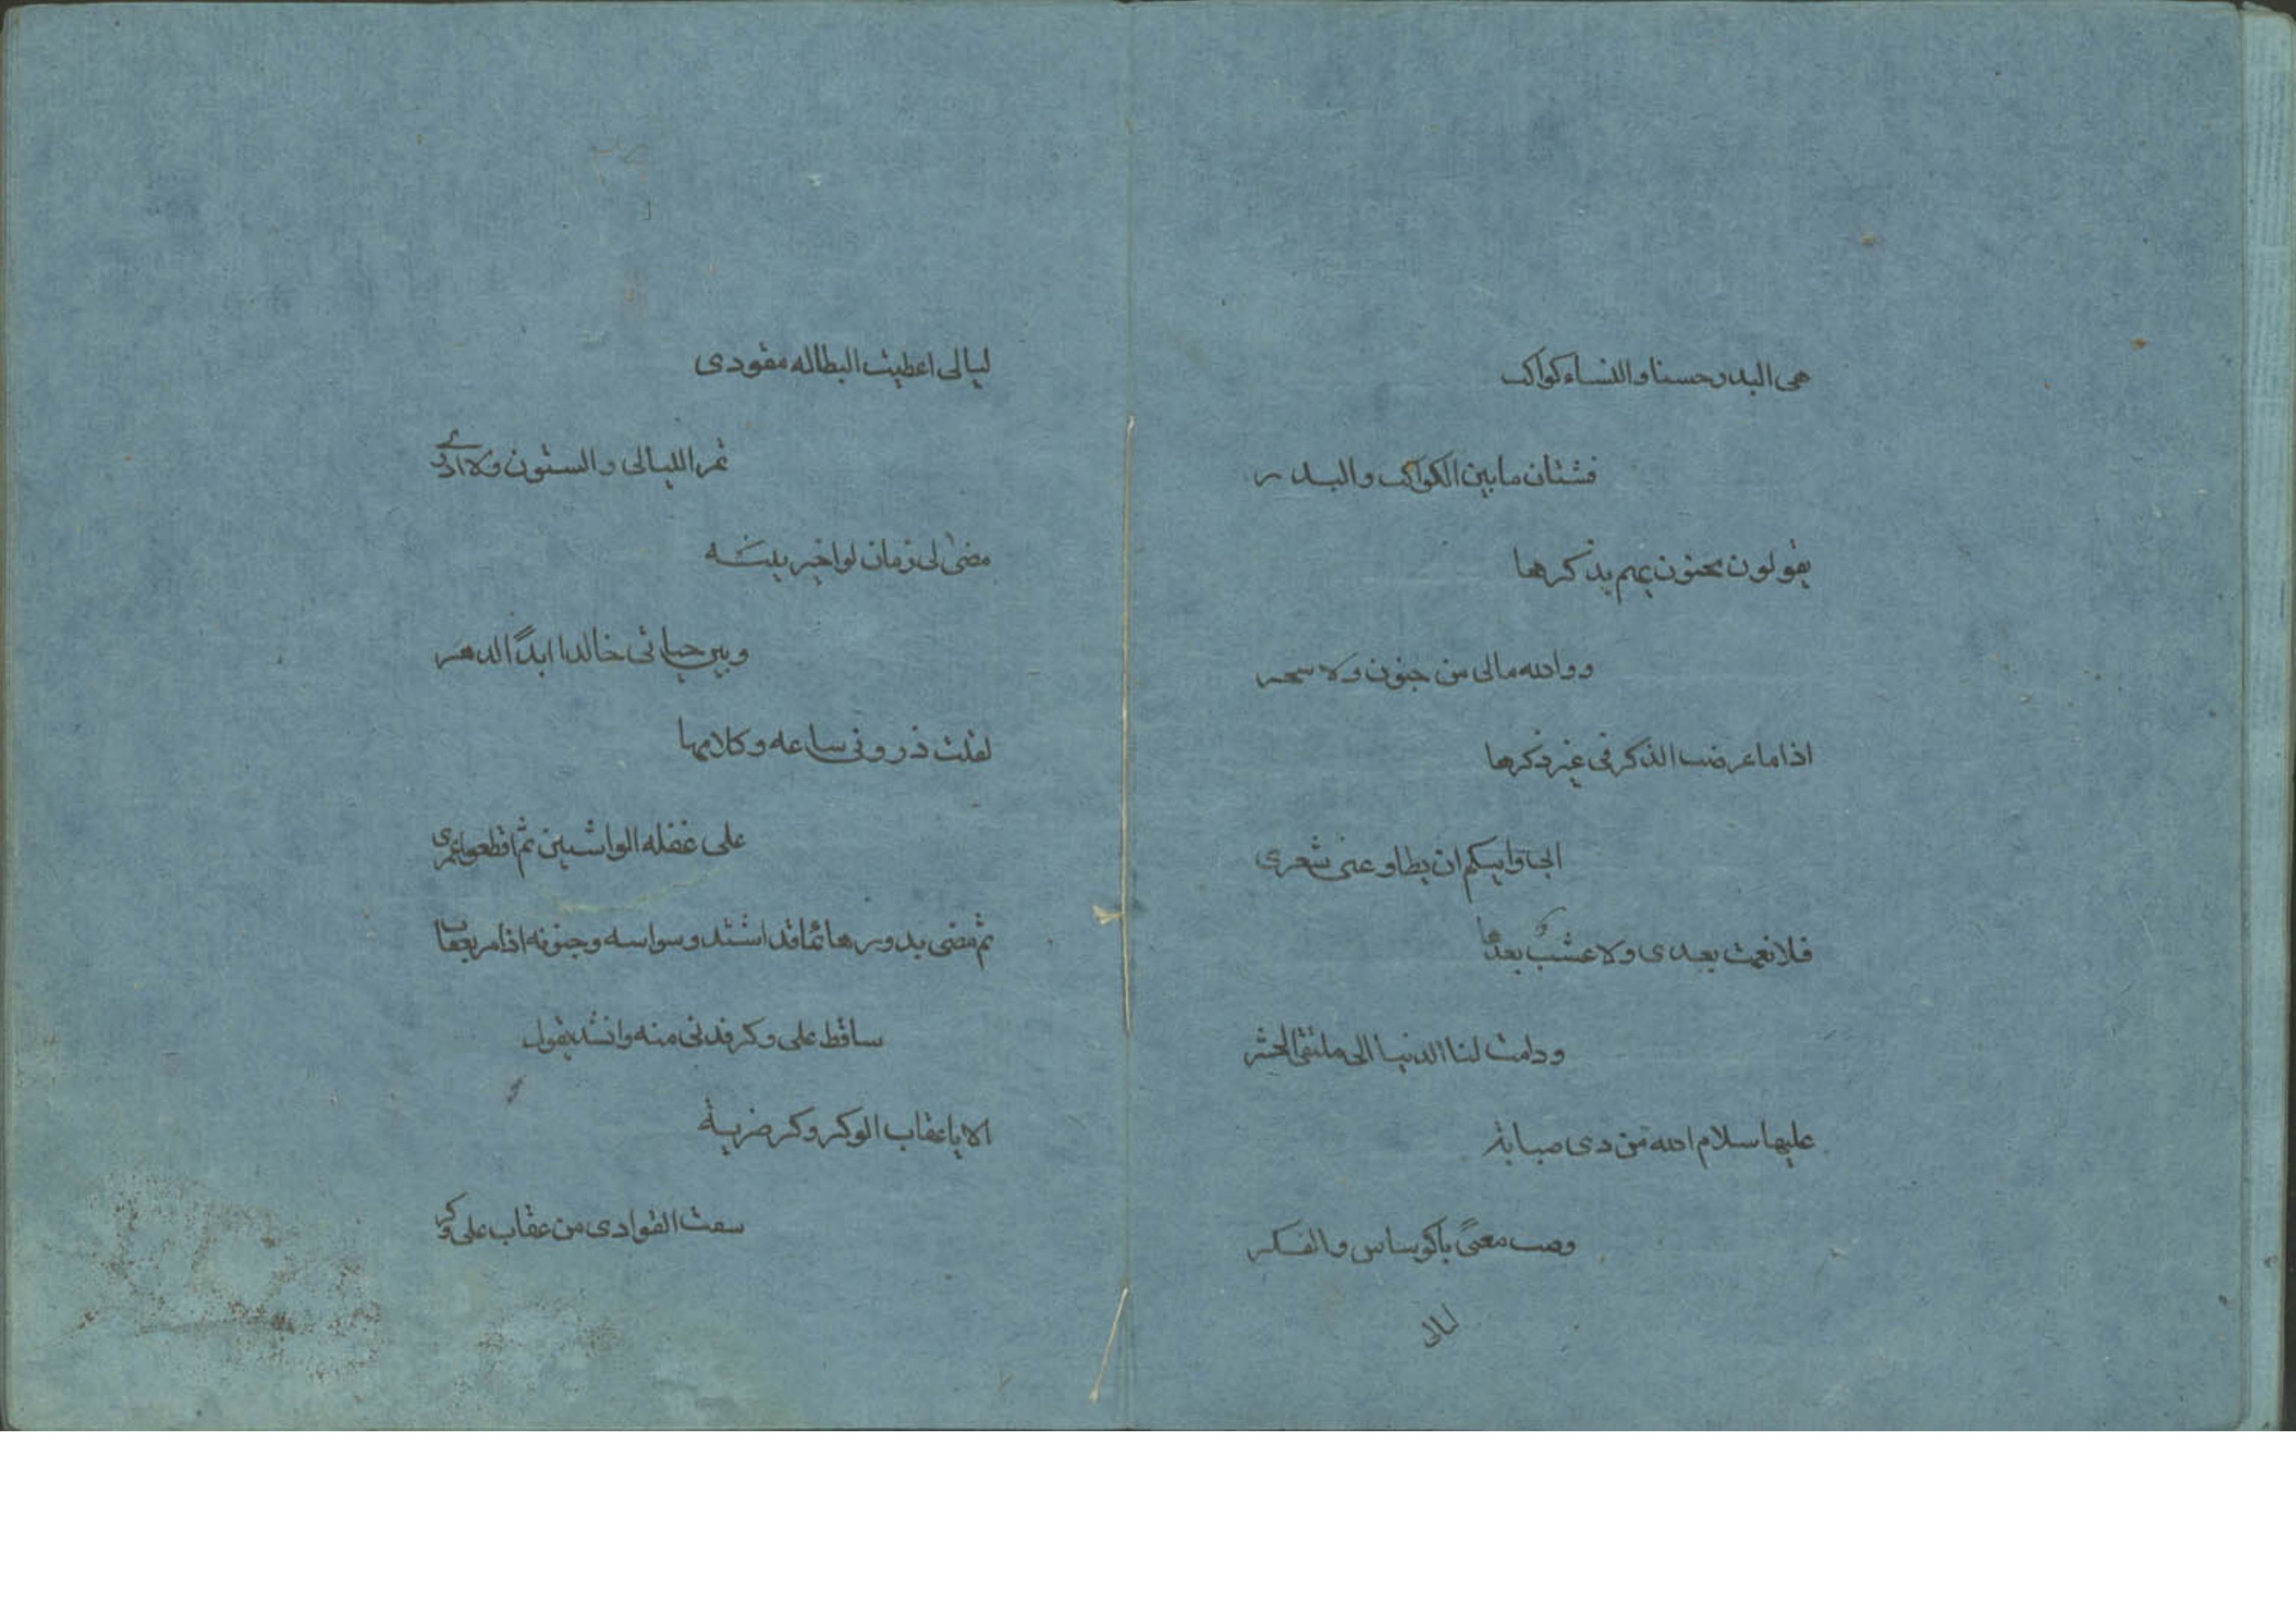 هى البدر حسنا والنساء كواكب
فشتان ما بين الكواكب والبدر
يقولون مجنون يهيم بذكرها
ووالله مالى من جنون ولا سحر
اذا ما عرضت الذكر فى غير ذكرها
ابى وابيكم ان يطاوعنى شعرى
فلا نعمت بعدى ولا عشت بعدها
ودامت لنا الدنيا الى ملتقى الحشر
عليها سلام الله من دى صبابة
وصب معنى بالوساس والفكر
ليالى
ليالى اعطيت البطاله مقودى
تمر الليالى والسنون ولا ادرى
مضى لى زمان لو اخير بينه
وبين حياتى خالدا ابدًا الدهر
لقلت ذرونى ساعه وكلامها
على غفله الواشين ثم اقطعوا عمرى
ثم مضى يدور هائما قد اشتد وسواسه وجنونه اذا مر بعقاب
ساقط على وكر فدنى منه وانشد يقول
الا يا عقاب الوكر وكر ضرية
سقت الغوادى من عقاب على وكر